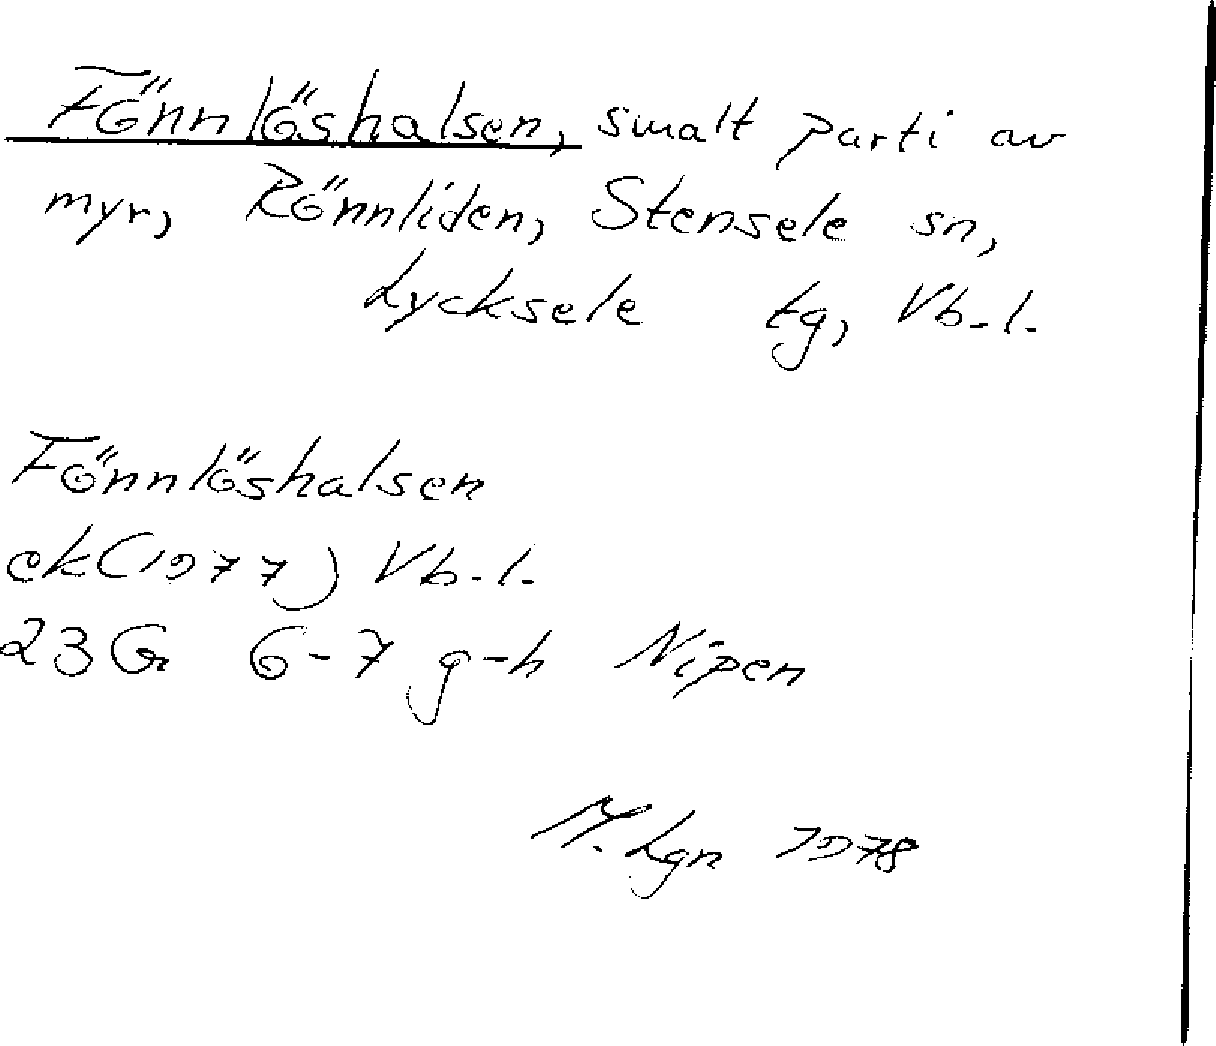 Fönnlöshalsen, smalt parti av
myr, Rönnliden, Stensele sn,
Lycksele tg, Vb-l.
Fönnlöshalsen
ek(1977) Vb-l.
23G 6-7 g-h Nipen
M. Lgn 1978